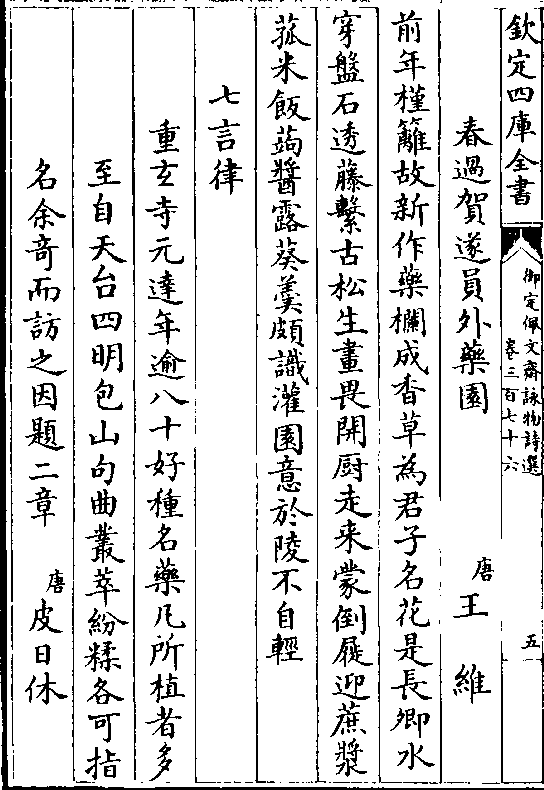 欽定四庫全書
御定佩文齋詠物詩選
卷三百七十六
五
春過賀遂員外藥園
唐
王維
前年槿籬故新作藥欄成香草為君子名花是長卿水
穿盤石透藤繫古松生畫畏開厨走来蒙倒屣迎蔗漿
菰米飯蒟醬露葵羮頗識灌園意於陵不自輕
七言律
重玄寺元達年逾八十好種名藥凡所植者多
至自天台四明包山句曲叢萃紛糅各可指
名余奇而訪之因題二章
唐
皮日休